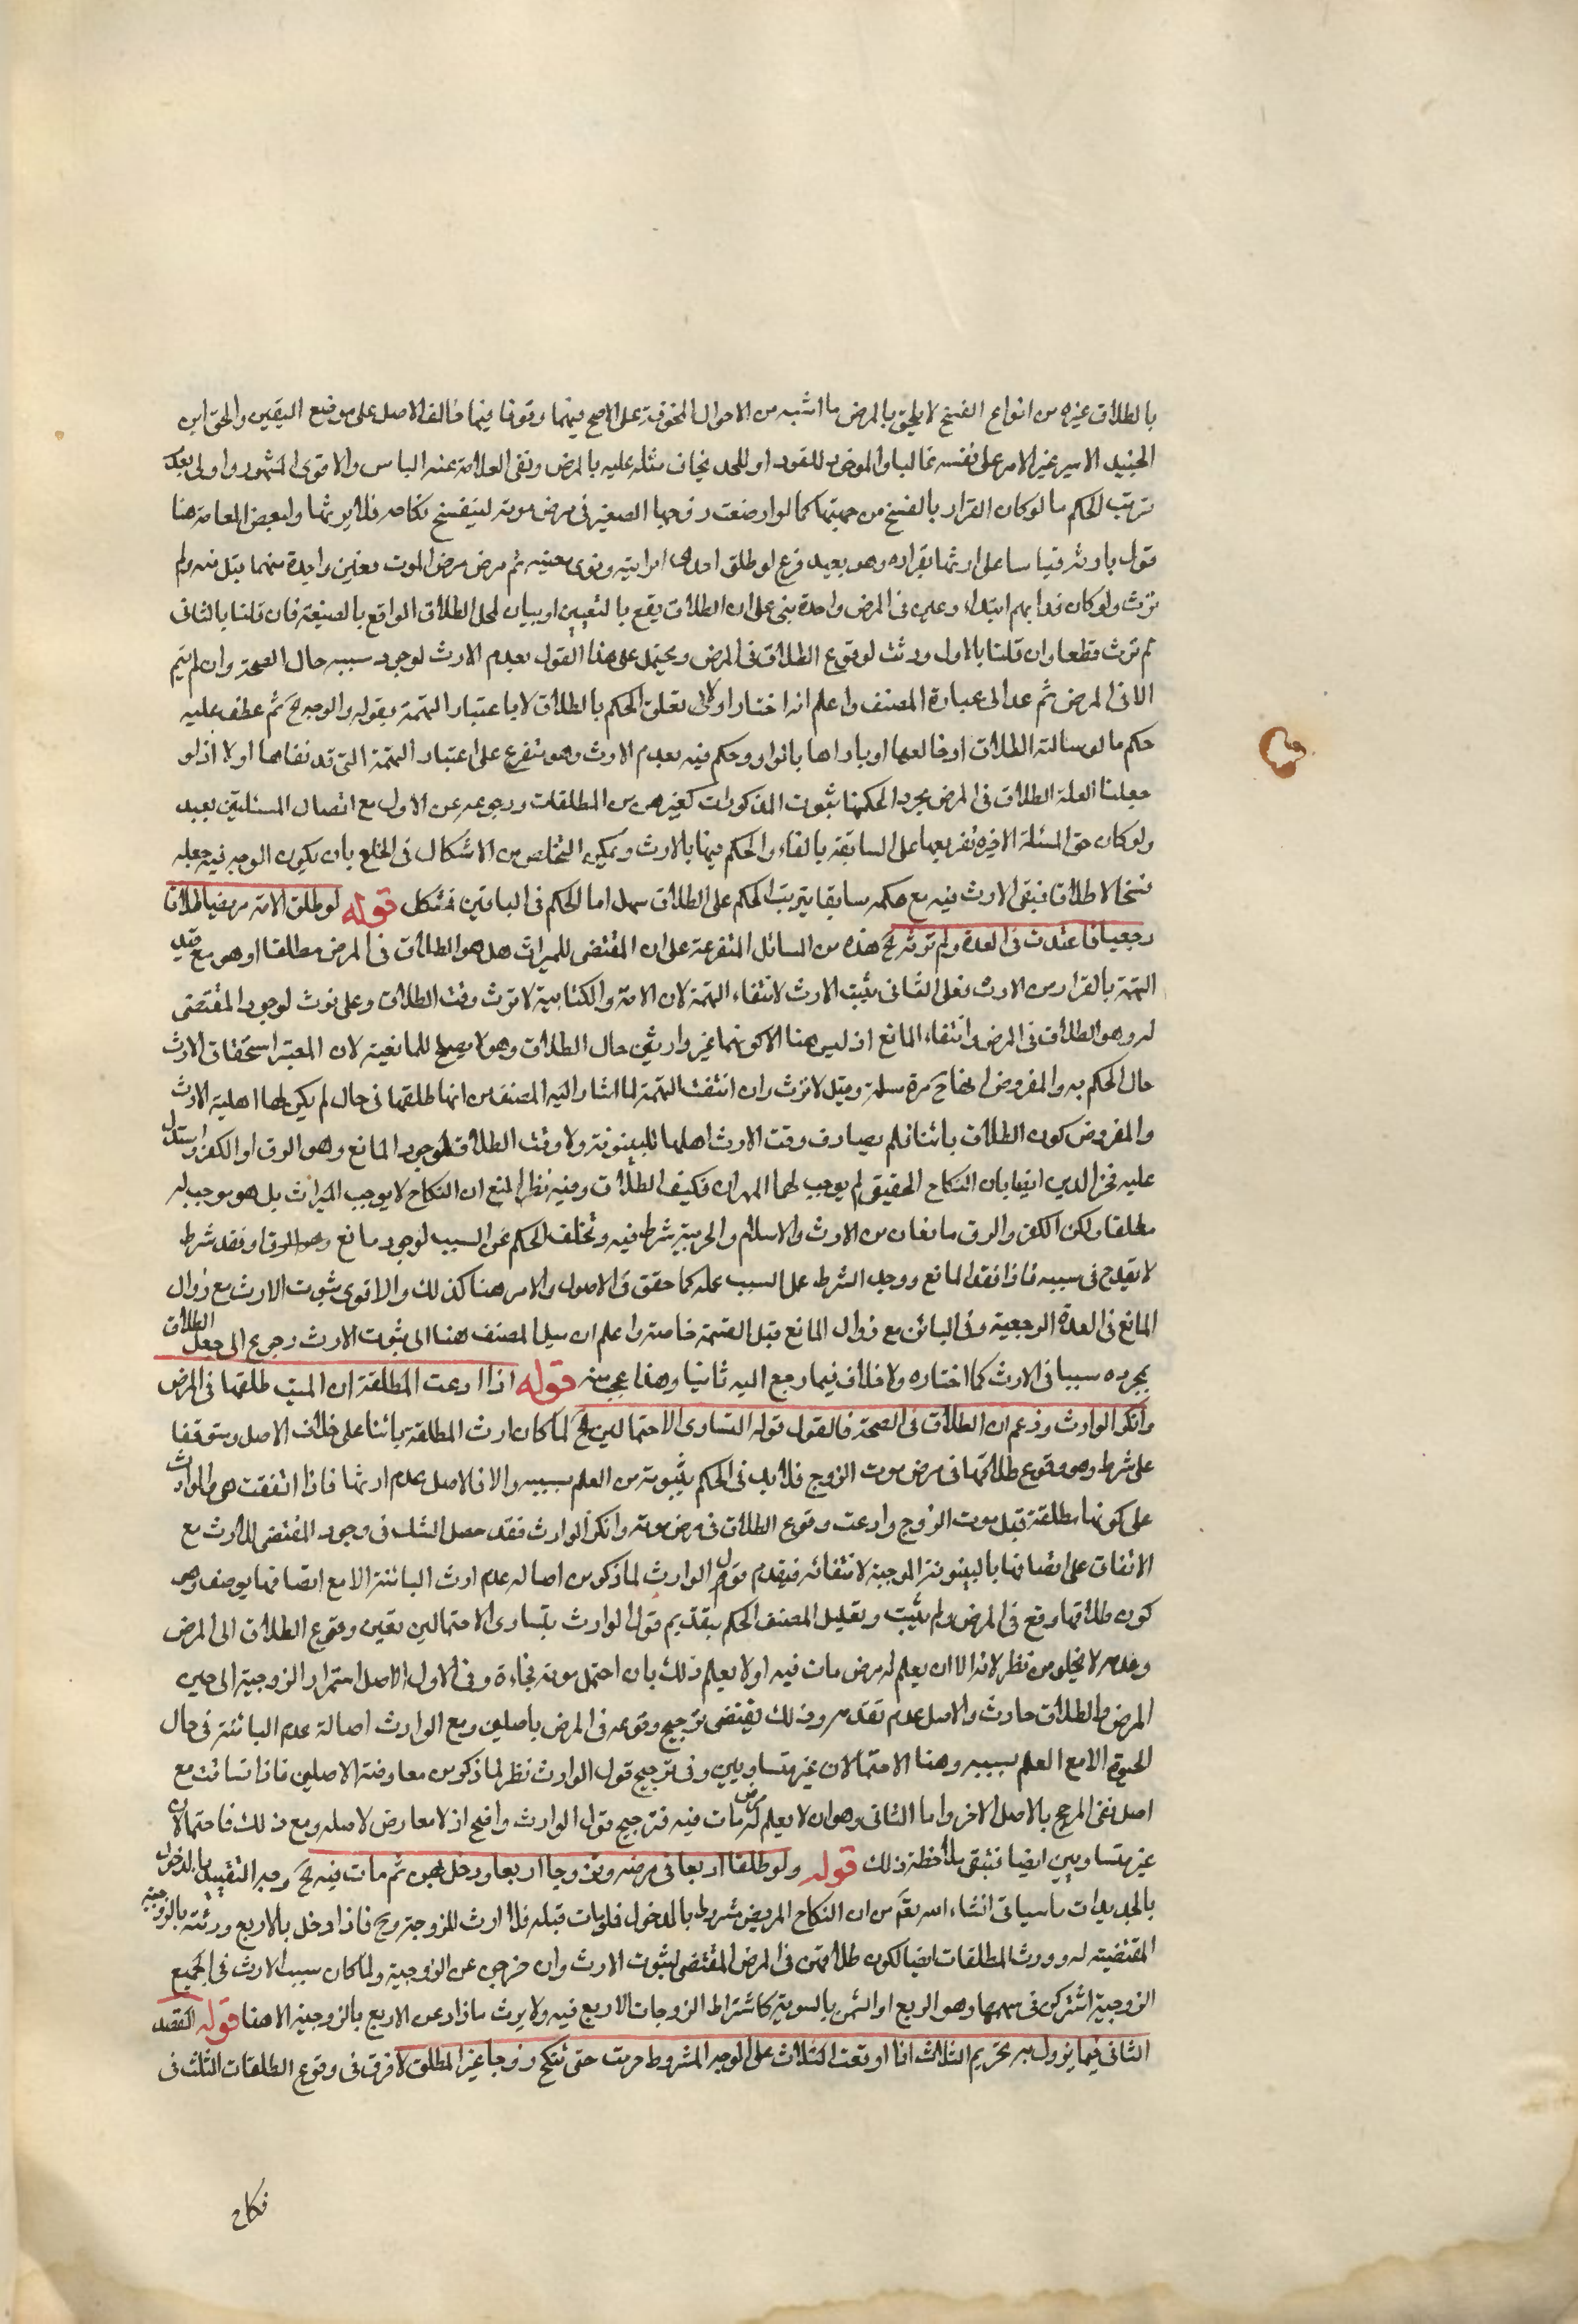 بالطلاق غيره من انواع الفسخ لا يلحق بالمرض ما اشبه من الاحوال المخوفة على الاصح فيهما وقوفا فيما خالف الاصل على موضع اليقين والحق ابن
الجنيد الاسير غير الامن على نفسه غالبا والماخوذ للقود او للحد يخاف مثله عليه بالمرض ونفى العلامة عنه الباس والاقوى المشهور واولى بعدم
ترتب الحكم ما لو كان الفرار بالفسخ من جهتها كما لو ارضعت زوجها الصغير في مرض موته لينفسخ نكاحه فلا يرثها ولبعض العامة هنا
قول بارثه قياسا على ارثها بفراره وهو بعيد فرع لو طلق احدى امراتيه ونوى معينه ثم مرض مرض الموت فعين واحدة منهما قبل منه ولم
ترث ولو كان قد ابهم ابتداء وعين في المرض واحدة بنى على ان الطلاق يقع بالتعيين او بيان لمحل الطلاق الواقع بالصيغة فان قلنا بالثاني
لم ترث قطعا وان قلنا بالاول ورثت لوقوع الطلاق في المرض ويحتمل على هذا القول بعدم الارث لوجود سببه حال الصحة وان لم يتم
الا في المرض ثم عد الى عبارة المصنف واعلم انه اختار اولا تعلق الحكم بالطلاق لا باعتبار التهمة بقوله والوجه الخ ثم عطف عليه
حكم ما لو سالته الطلاق او خالعها او باراها وحكم فيه بعدم الارث وهو متفرع على اعتبار التهمة التي قد نفاها اولا اذ لو
جعلنا العلة الطلاق في المرض بمجرد لحكمنا بثبوت المذكورات كغيرهن من المطلقات ورجوعه عن الاول مع اتصال المسئلتين بعيد
ولو كان حق المسئلة الاخيرة تفريعها على السابقة بالفاء والحكم فيها بالارث ويمكن التخلص من الاشكال في الخلع بان يكون الوجه فيه جعله
فسخا لا طلاقا فبقى الارث فيه مع حكمه سابقا بترتيب الحكم على الطلاق سهل اما الحكم في الباقين فمشكل قوله لو طلق الامة مريضا طلاقا
رجعيا فاعتدت في العدة ولم ترثه الخ هذه من المسائل المتفرعة على ان المقتضى للميراث هل هو الطلاق في المرض مطلقا او هو مع قيد
التهمة بالفرار من الارث فعلى الثاني يثبت الارث لانتفاء التهمة لان الامة والكتابية لا ترث وقت الطلاق وعلى ترث لوجود المقتضى
له وهو الطلاق في المرض وانتفاء المانع اذ ليس هنا الا كونهما غير وارثين حال الطلاق وهو لا يصلح للمانعية لان المعتبر استحقاق الارث
حال الحكم به والمفروض انها ح حرة مسلمة وقيل لا ترث وان انتفت التهمة لما اشار اليه المصنف من انه طلقها في حال لم يكن لها اهلية الارث
والمفروض كون الطلاق بائنا فلم يصادف وقت الارث اهلها للبينونة ولا وقت الطلاق لوجود المانع وهو الرق او الكفر واستدل
عليه فخر الدين ايضا بان النكاح الحقيقي لم يوجب لهما الميراث فكيف الطلاق وفيه نظر المنع ان النكاح لا يوجب الميراث بل هو موجب له
مطلقا ولكن الكفر والرق مانعان من الارث والاسلام والحرية شرط فيه وتخلف الحكم عن السبب لوجود مانع وهو الرق او فقد شرط
لا يقدح في سببه فاذا فقد المانع ووجد الشرط عمل السبب عمله كما حقق في الاصول والامر هنا كذلك والاقوى ثبوت الارث مع زوال
المانع في العدة الرجعية وفي البائن مع زوال المانع قبل القسمة خاصة واعلم ان ميل المصنف هنا الى ثبوت الارث رجوع الى جعل الطلاق
بمجرده سببا في الارث كما اختاره ولا خلاف فيما رجع اليه ثانيا وهذا عجب منه قوله اذا ادعت المطلقة ان الميت طلقها في المرض
وانكر الوارث وزعم ان الطلاق في الصحة فالقول قوله لتساوى الاحتمالين الخ لما كان ارث المطلقة بائنا على خلاف الاصل ومتوقفا
على شرط وهو وقوع طلاقها في مرض موت الزوج فلا بد في الحكم بثبوته من العلم بسببه والا فالاصل عدم ارثها فاذا اتفقت هي والوارث
على كونها مطلقة قبل موت الزوج وادعت وقوع الطلاق في مرض موته وانكر الوارث فقد حصل الشك في وجود المقتضى للارث مع
الاتفاق على اتصافها بالبينونة الموجبة لانتفائه فيقدم قول الوارث لما ذكر من اصالة عدم ارث البائنة الا مع اتصافها بوصف وهو
كون طلاقها وقع في المرض ولم يثبت وتعليل المصنف الحكم بتقديم قول الوارث بتساوى الاحتمالين يعنى وقوع الطلاق الى المرض
وعدمه لا يخلو من نظر لانه اما ان يعلم له مرض مات فيه او لا يعلم ذلك بان احتمل موته فجاءة وفي الاول الاصل استمرار الزوجية الى حين
المرض والطلاق حادث والاصل عدم تقدمه وذلك يقتضى ترجيح وقوعه في المرض باصلين ومع الوارث اصالة عدم البائنة في حال
الحيوة الا مع العلم بسببه وهنا الاحتمالان غير متساويين وفي ترجيح قول الوارث نظر لما ذكر من معارضة الاصلين فاذا تساقت مع
اصل نفى المرجح بالاصل الاخر واما الثاني وهو ان لا يعلم له مرض مات فيه فترجيح قول الوارث واضح اذ لا معارض لاصله ومع ذلك فاحتمالان
غير متساويين ايضا فتبقى بملاحظة ذلك قوله ولو طلق اربعا في مرضه وتزوج اربعا ودخل بهن ثم مات فيه الخ وجه التقييد بالدخول
بالجديدات ما سياتي انشاء الله تع من ان النكاح المريض مشروط بالدخول فلو مات قبله فلا ارث للزوجة وح فاذا دخل بالاربع ورثته بالزوجية
المقتضية له وورث المطلقات ايضا لكون طلاقهن في المرض المقتضى لثبوت الارث وان خرجن عن الزوجية ولما كان سبب الارث في الجميع
الزوجية اشتركن في سهمها وهو الربع او الثمن بالسوية كاشتراط الزوجات الاربع فيه ولا يرث ما زاد عن الاربع بالزوجية الا هنا قوله المقصد
الثاني فيما يزول به تحريم الثلاث اذا اوقعت الثلاث على الوجه المشروط حرمت حتى تنكح زوجا غير المطلق لا فرق في وقوع الطلقات الثلث في
نكاح